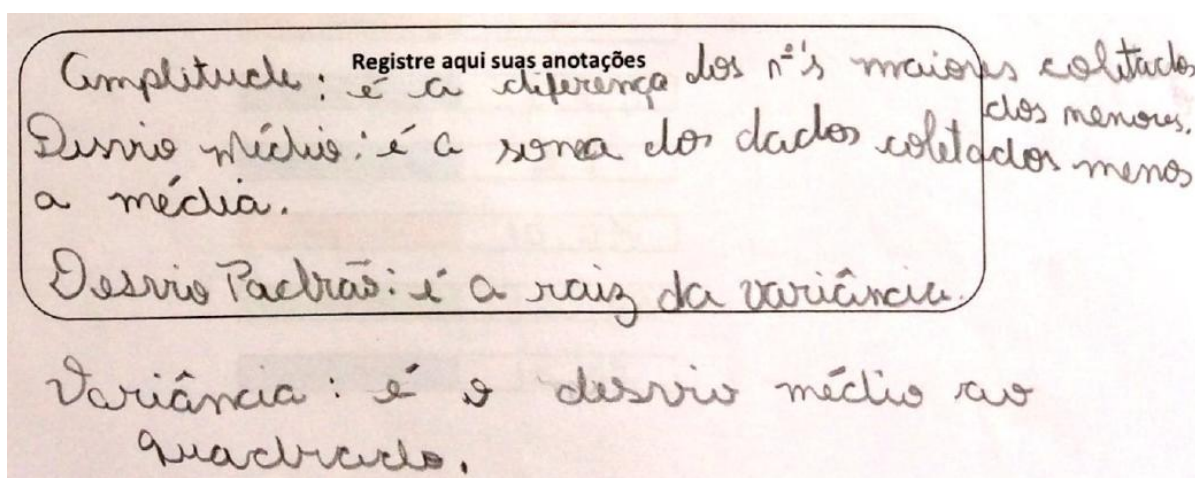 Registre aqui suas anotações
Amplitude: é a diferença dos nº's maiores coletados
dos menores.
Desvio Médio: é a soma dos dados coletados menos
a média.
Desvio Padrão: é a raiz da variância.
Variância: é o desvio médio ao
quadrado.